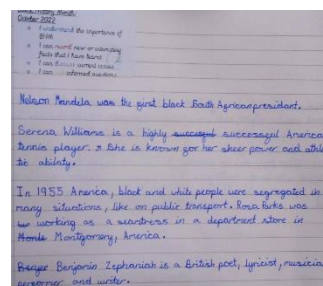 Black History Month
October 2022
I understand the importance of
BHM
I can record new or interesting
facts that I have learnt
I can discuss current issues
I can informed questions
Nelson Mandela was the first black South African president.
Serena Williams is a highly successful America
tennis player. She is known for her sheer power and athle
tic ability.
In 1955 America, black and white people were segregated in
many situations, like on public transport. Rosa Parks was
working as a seamstress in a department store in
Montgomery, America.
Benjamin Zephaniah is a British poet, lyricist, musicia
performer and writer.